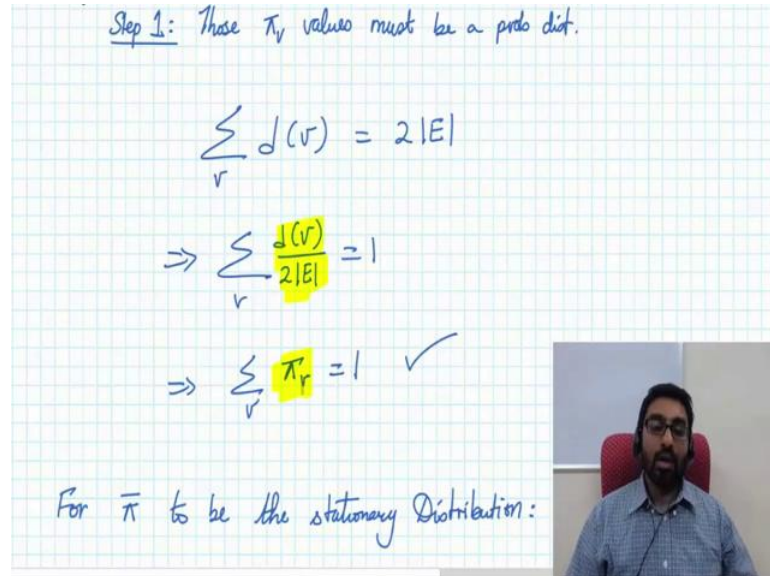 Step 1: Those πᵥ values must be a prob dist.
∑ d(v) = 2|E|
v
⇒ ∑ d(v)/2|E| = 1
v
⇒ ∑ πᵥ = 1 ✓
v
For π̄ to be the stationary Distribution: